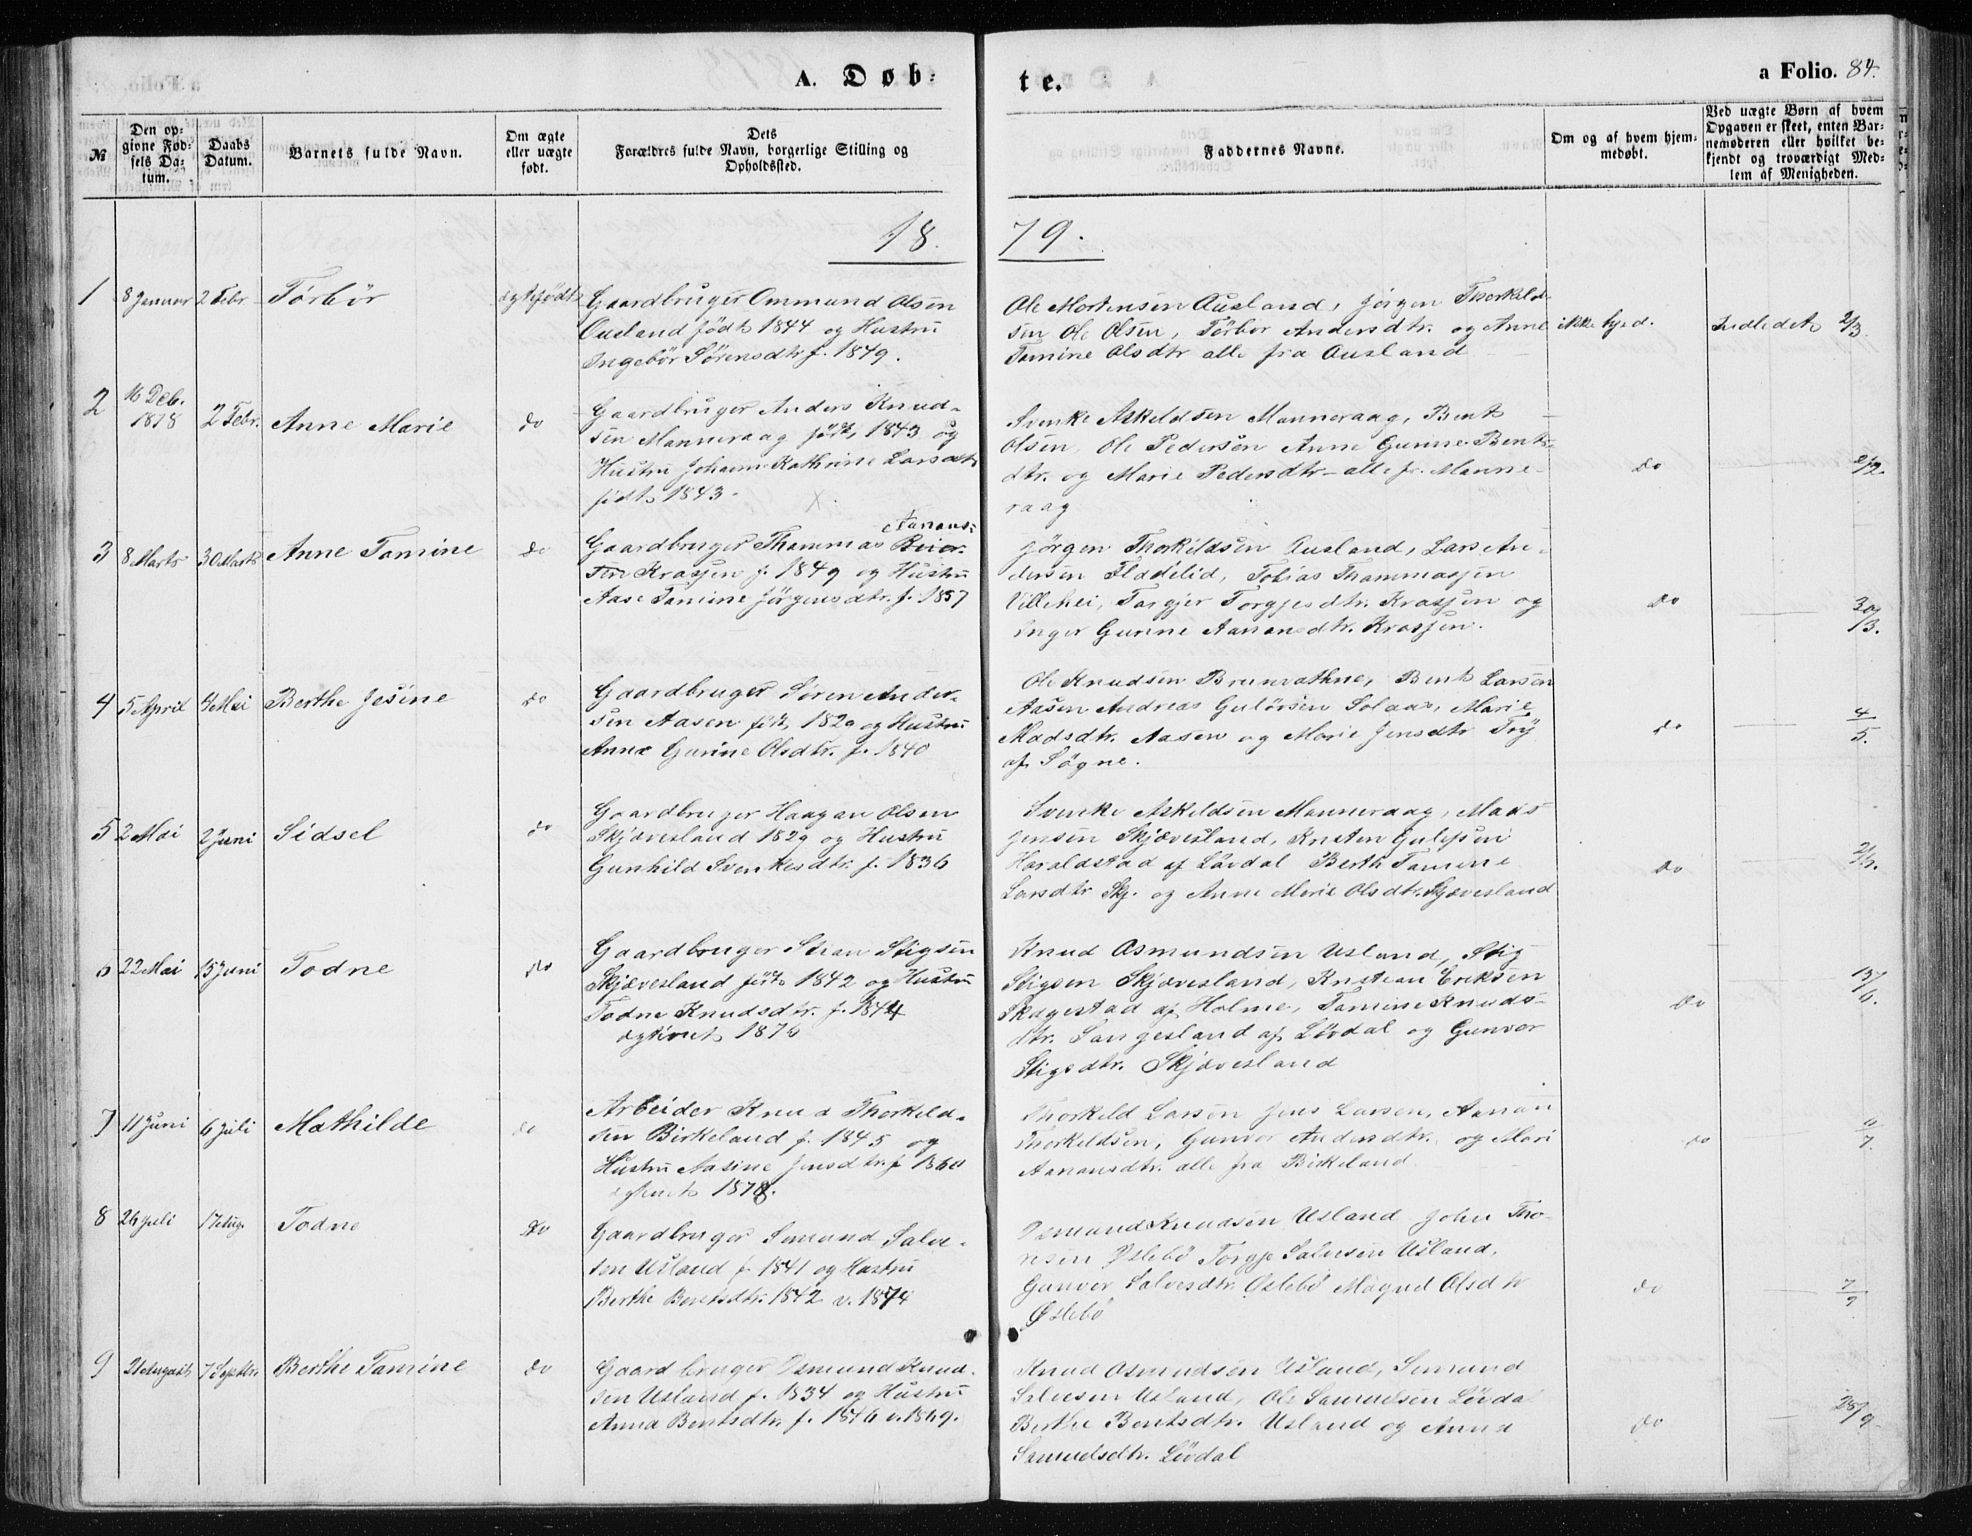 A. Døb-
te.
a Folio. 84.
№
Den op-
givne Fød-
sels Da-
tum.
Daabs
Datum.
Barnets fulde Navn.
Om ægte
eller uægte
født.
Dets
Forældres fulde Navn, borgerlige Stilling og
Opholdssted.
Faddernes Navne.
Om og af hvem hjem-
medøbt.
Ved uægte Børn af hvem
Opgaven er skeet, enten Bar-
nemoderen eller hvilket be-
kjendt og troværdigt Med-
lem af Menigheden.
18.
79.
1
8 Januar
2 Febr.
Tørbør
ægtefødt
Gaardbruger Ommund Olsen
Ausland født 1844 og Hustru
Ingebør Sørensdtr f. 1849.
Ole Mortensen Ausland, Jørgen Thorkild-
sen Ole Olsen, Tørbor Andersdtr. og Anne
Tomine Olsdtr alle fra Ausland
ikke hjed.
Indledet 2/3.
2
16 Deb.
1878
2 Febr.
Anne Marie
do
Gaardbruger Anders Knud-
sen Manneraag født 1843 og
Hustru Johanne Kathrine Larsdtr
født 1843.
Svenke Askeldsen Manneraag, Bent
Olsen, Ole Pedersen Anne Gurine Bents-
dtr. og Marie Pedersdtr - alle fr. Manne-
raag
do
2/2.
3
8 Marts
30 Marts
Anne Tomine
do
Aanons-
Gaardbruger Thommas
sen Krosjen f. 1849 og Hustru
Aase Tomine Jørgensdtr. f. 1857
Jørgen Thorkildsen Ausland, Lars An-
dersen Flødelid, Tobias Thommasjen
Villehei, Torgjer Torgjesdtr. Krosjen og
Inger Gurine Aanonsdtr. Krosjen.
do
30/3.
4
5 April
4 Mai
Berthe Jesine
do
Gaardbruger Søren Ander-
sen Aasen født 1820 og Hustru
Anne Gurine Olsdtr. f. 1840
Ole Knudsen Brunvathne, Bent Larsen
Aasen Andreas Guldrsen Solaas, Marie
Madsdtr. Aasen og Marie Jensdtr Try
af Søgne.
do
4/5.
5
2 Mai
2 Juni
Sidsel
do
Gaardbruger Haagan Olsen
Skjævesland 1829 og Hustru
Gunhild Svenkesdtr. f. 1836
Svenke Askeldsen Manneraag, Mads
Jensen Skjævesland, Kristen Gulejsen
Haraldstad af Løvdal Berth Tomine
Larsdtr Skj. og Anne Marie Olsdtr. Skjævesland
do
6
22 Mai
15 Juni
Todne
do
Gaardbruger Stian Stigsen
Skjævesland født 1842 og Hustru
Todne Knudsdtr. f. 1844
ægtviet 1876
Knud Osmundsen Usland, Stig
Stigsen Skjævesland, Kristian Eriksen
Skagestad af Holme, Tomine Knuds-
dtr. Sangesland af Løvdal og Gunvor
Stigsdtr. Skjævesland
do
15/6.
7
11 Juni
6 Juli
Mathilde
do
Arbeider Knud Thorkeld-
sen Birkeland f. 1845 og
Hustru Aasine Jensdtr. f. 1860
ægteviet 1878.
Thorkild Larsen Jens Larsen, Aanon
Thorkildsen, Gunvor Andersdtr. og Mari
Aanonsdtr. alle fra Birkeland.
do
6/7.
8
26 Juli
17 Aug.
Todne
do
Gaardbruger Semund Salve-
sen Usland f 1841 og Hustru
Berthe Bentsdtr. 1842 v. 1874
Osmund Knudsen Usland John Tho-
resen Øslebø Torgje Salvesen Usland,
Gunvor Salvesdtr. Øslebø Magnel Olsdtr
Øslebø
do
7/9
9
21 August
7 Septbr.
Berthe Tomine
do
Gaardbruger Osmund Knud-
sen Usland f. 1834 og Hustru
Anna Bentsdtr. f. 1846 v. 1869.
Knud Osmundsen Usland, Semund
Salvesen Usland, Ole Samuelsen Løvdal
Berthe Bentsdtr. Usland og Anna
Samuelsdtr. Løvdal
do
28/9